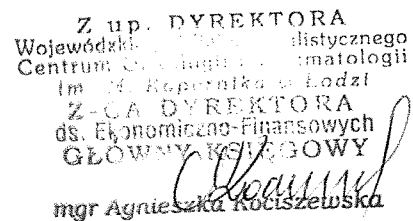 Z up. DYREKTORA
Wojewódzki listycznego
Centrum matologii
im. M. Kopernika w Łodzi
Z-CA DYREKTORA
ds. Ekonomiczno-Finansowych
GŁÓWNY KSIĘGOWY
mgr Agnieszka Kociszewska